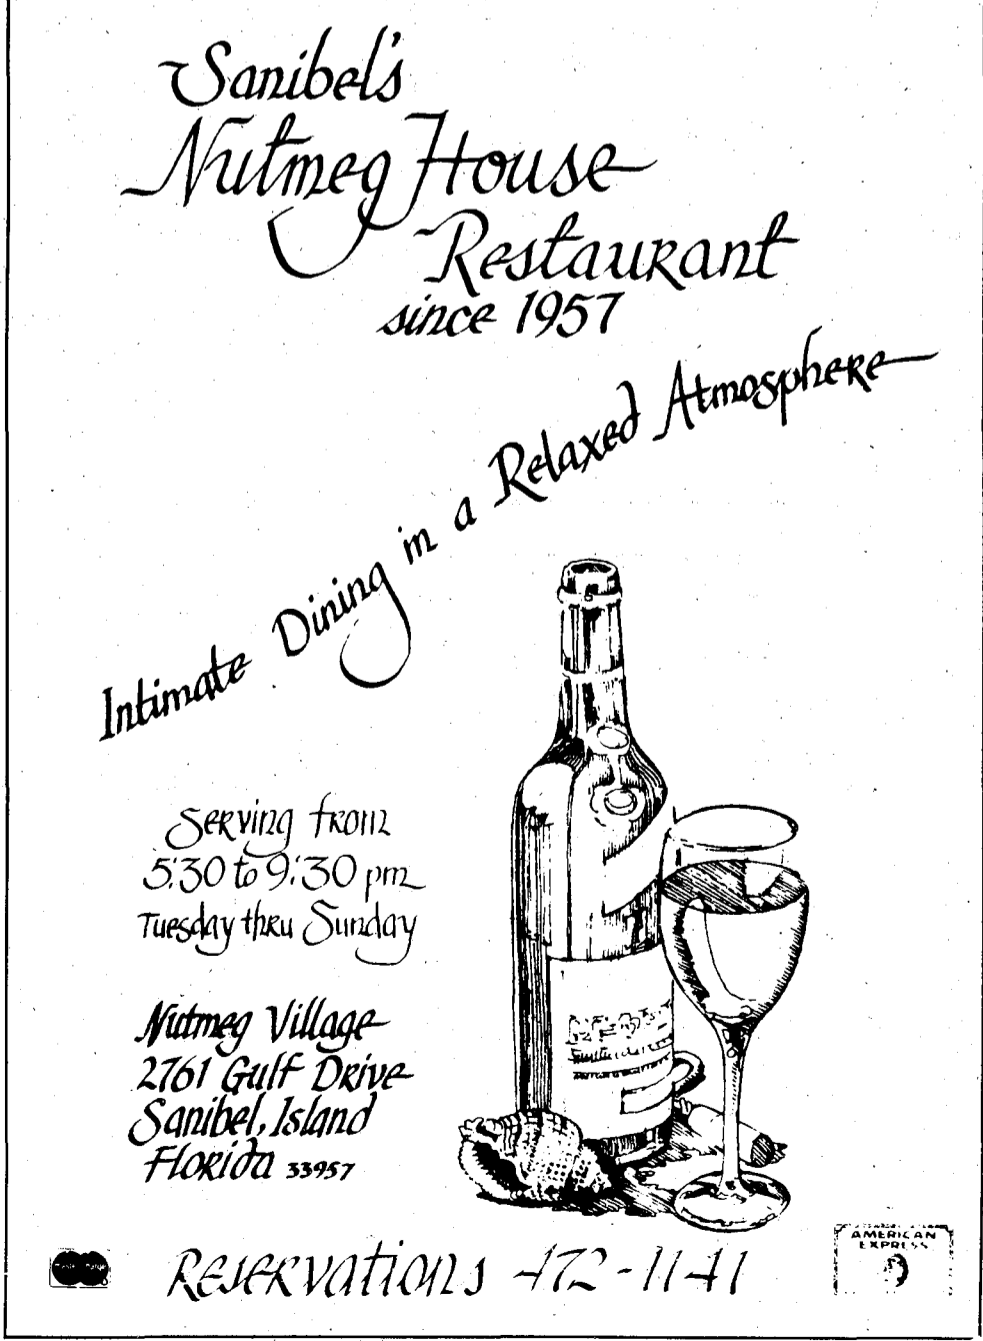 Sanibel's
Nutmeg House
Restaurant
since 1957
Intimate Dining in a Relaxed Atmosphere
Serving from
5:30 to 9:30 pm
Tuesday thru Sunday
Nutmeg Village
2761 Gulf Drive
Sanibel, Island
Florida 33957
Reservations 472-1141
AMERICAN
EXPRESS